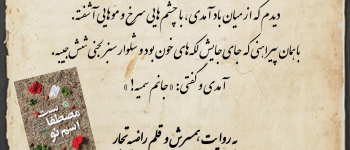 دیدم که از میان باد آمدی، با چشم‌هایی سرخ و موهایی آشفته.
با همان پیراهنی که جای جایش لکه‌های خون بود و شلوار سبز لجنی شش جیبه.
آمدی و گفتی: «جانم سمیه!»
به روایت همسرش و قلم راضیه تجار
اسم تو
مصطفاست